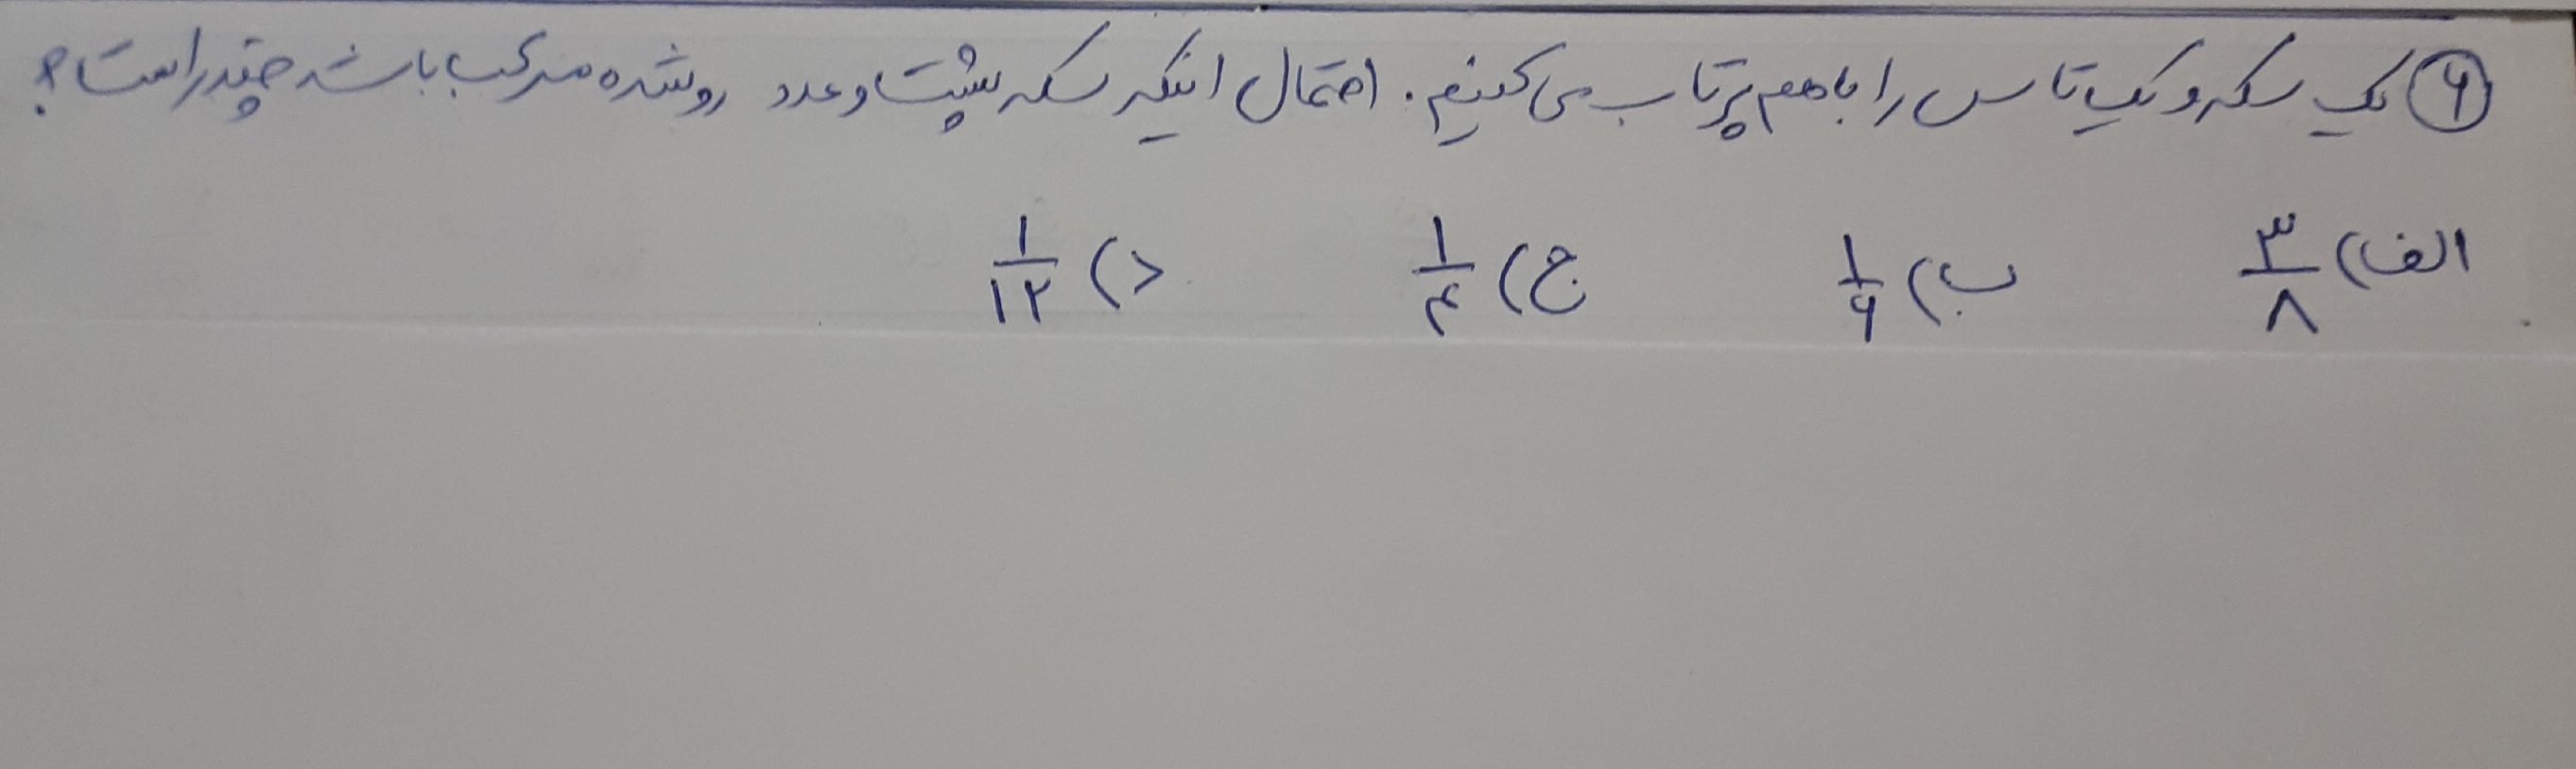 ۶ یک سکه و یک تاس را با هم پرتاب می کنیم. احتمال اینکه سکه پشت و عدد رو شده مرکب باشد چقدر است؟
الف) ۳/۸ ب) ۱/۶ ج) ۱/۴ د) ۱/۱۲